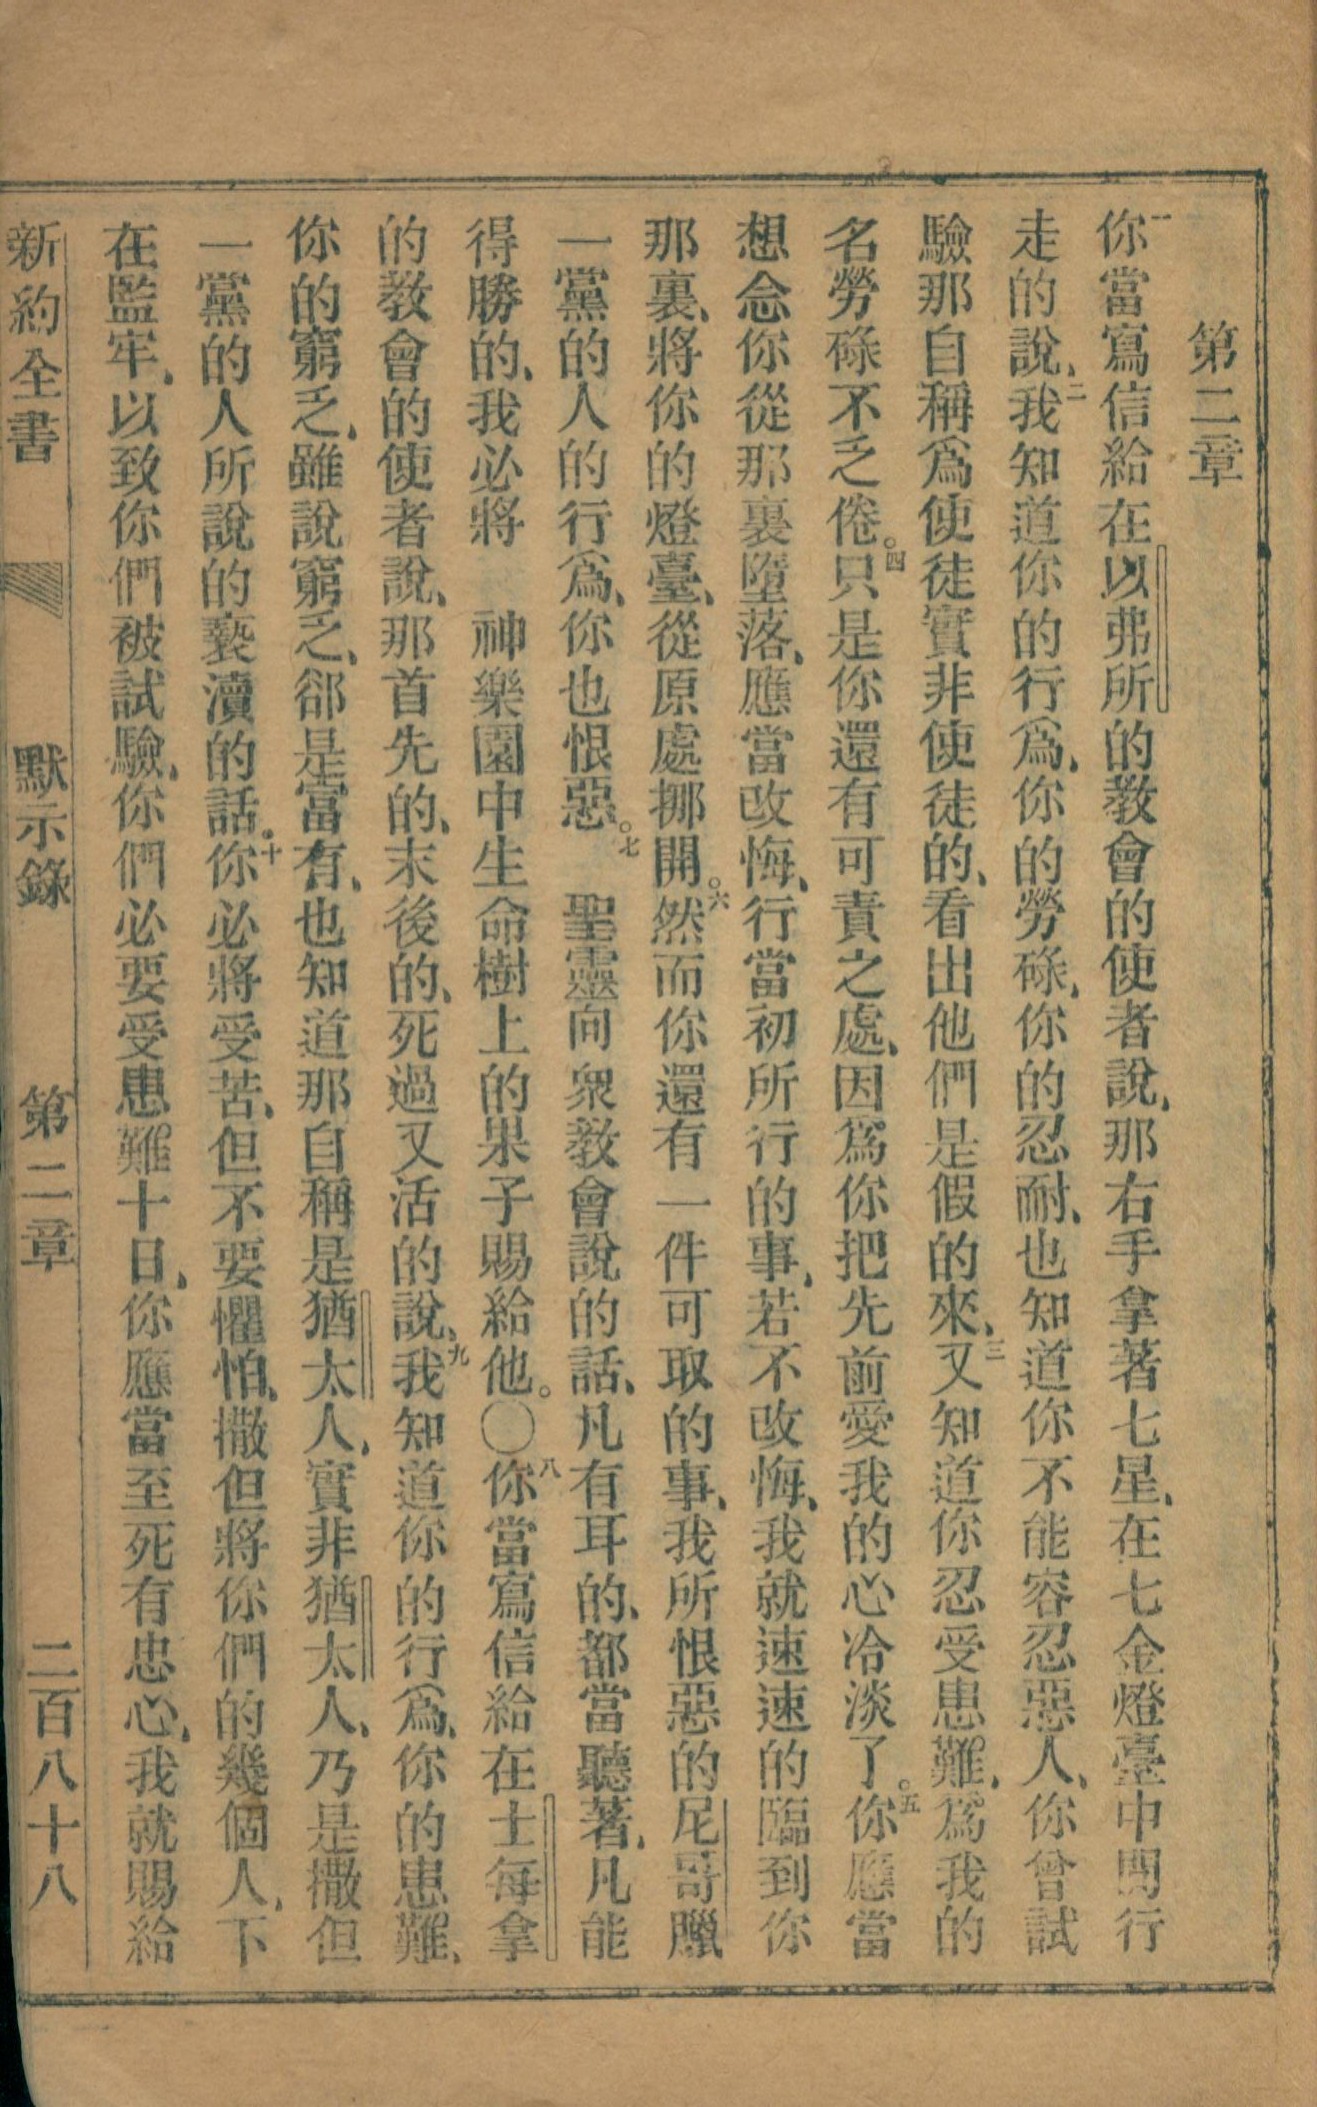 第二章
一你當寫信給在以弗所的教會的使者說、那右手拿著七星、在七金燈臺中間行
走的說、二我知道你的行爲、你的勞碌、你的忍耐、也知道你不能容忍惡人、你曾試
驗那自稱爲使徒實非使徒的、看出他們是假的來、三又知道你忍受患難、爲我的
名勞碌不乏倦。四只是你還有可責之處、因爲你把先前愛我的心冷淡了。五你應當
想念你從那裏墮落、應當改悔、行當初所行的事、若不改悔、我就速速的臨到你
那裏、將你的燈臺、從原處挪開。六然而你還有一件可取的事、我所恨惡的尼哥臘
一黨的人的行爲、你也恨惡。七　聖靈向衆教會說的話、凡有耳的、都當聽著、凡能
得勝的、我必將　神樂園中生命樹上的果子賜給他。〇八你當寫信給在士每拿
的教會的使者說、那首先的、末後的、死過又活的說、九我知道你的行爲、你的患難、
你的窮乏、雖說窮乏、郤是富有、也知道那自稱是猶太人、實非猶太人、乃是撒但
一黨的人所說的褻瀆的話。十你必將受苦、但不要懼怕、撒但將你們的幾個人、下
在監牢、以致你們被試驗、你們必要受患難十日、你應當至死有忠心、我就賜給
新約全書　默示錄　第二章　二百八十八